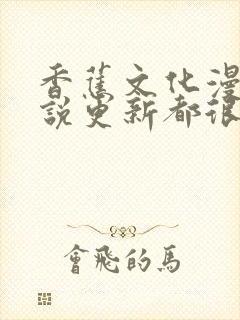 香蕉文化漫
說更新都很
會飛的馬